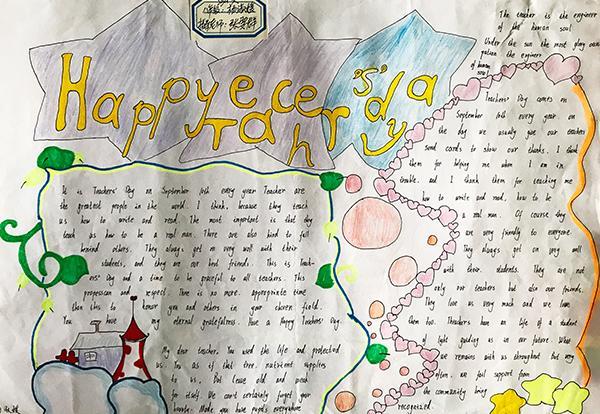 Happy Teacher's day
The teacher is the engineer
of the human soul
Under the sun the most glory occu
pation the engineer
of human
soul
It is Teachers' Day on September 10th every year Teacher are
the greatest people in the world. I think, because they teach
us how to write and read. The most important is that they
teach us how to be a real man. There are also kind to fell
behind others. They always get on very well with their
students, and they are our best friends. This is Teach-
ers' Day and a time to be graceful to all teachers. This
profession and respect. There is no more. appropriate time
than this to honour you and others in your chosen field.
You have my eternal gratefulness. Have a Happy Teachers' Day.
My dear teacher. You used the life and protected
us. You as if that tree. nutrient supplies
to us. But leave old and peak
for itself. We can't certainly forget your
Make you have pupils everywhere
Teachers' Day comes on
September 10th every year on
the day we usually give our teachers
send cards to show our thanks. I think
them for helping me when I am in
trouble. and I think them for teaching me
how to write and read, how to be
a real man. Of course they
are very friendly to everyone.
They always get on very well
with their students. They are not
only our teachers but also our friends.
They love us very much and we love
them too. Threachers have on life of a student
of light guiding us in our future. What
we remains with us throughout. But very
often, we fail support from
the community being
recognized.